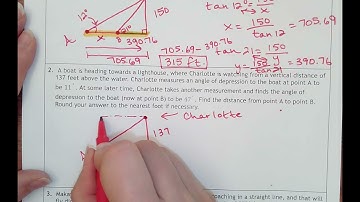 12°
150
tan 12 =
x = 150/tan 12 = 705.69
A
x
B
21°
390.76
705.69
705.69 - 390.76
315 ft.
tan 21 = 150/y
y = 150/tan 21 = 390.76
2. A boat is heading towards a lighthouse, where Charlotte is watching from a vertical distance of
137 feet above the water. Charlotte measures an angle of depression to the boat at point A to
be 11°. At some later time, Charlotte takes another measurement and finds the angle of
depression to the boat (now at point B) to be 47°. Find the distance from point A to point B.
Round your answer to the nearest foot if necessary.
Charlotte
137
3.
approaching in a straight line, and that